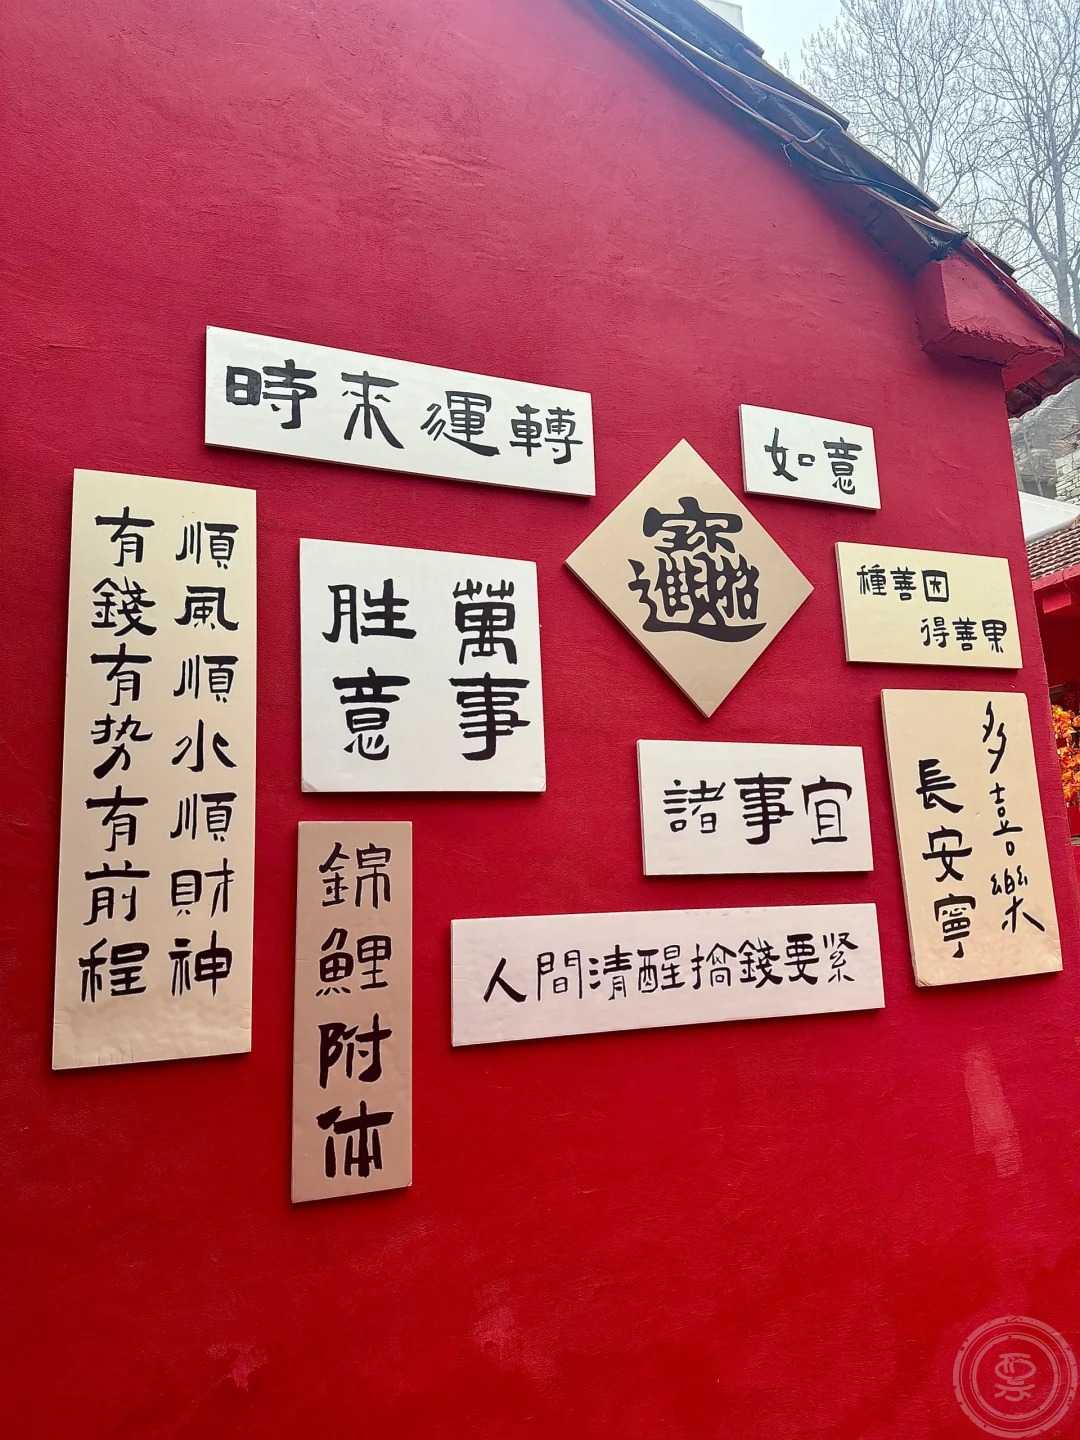 時來運轉
如意
順風順水順財神
有錢有势有前程
萬事
胜意
招財進寶
種善因
得善果
諸事宜
多喜樂
長安寧
錦鯉附体
人間清醒搞錢要紧